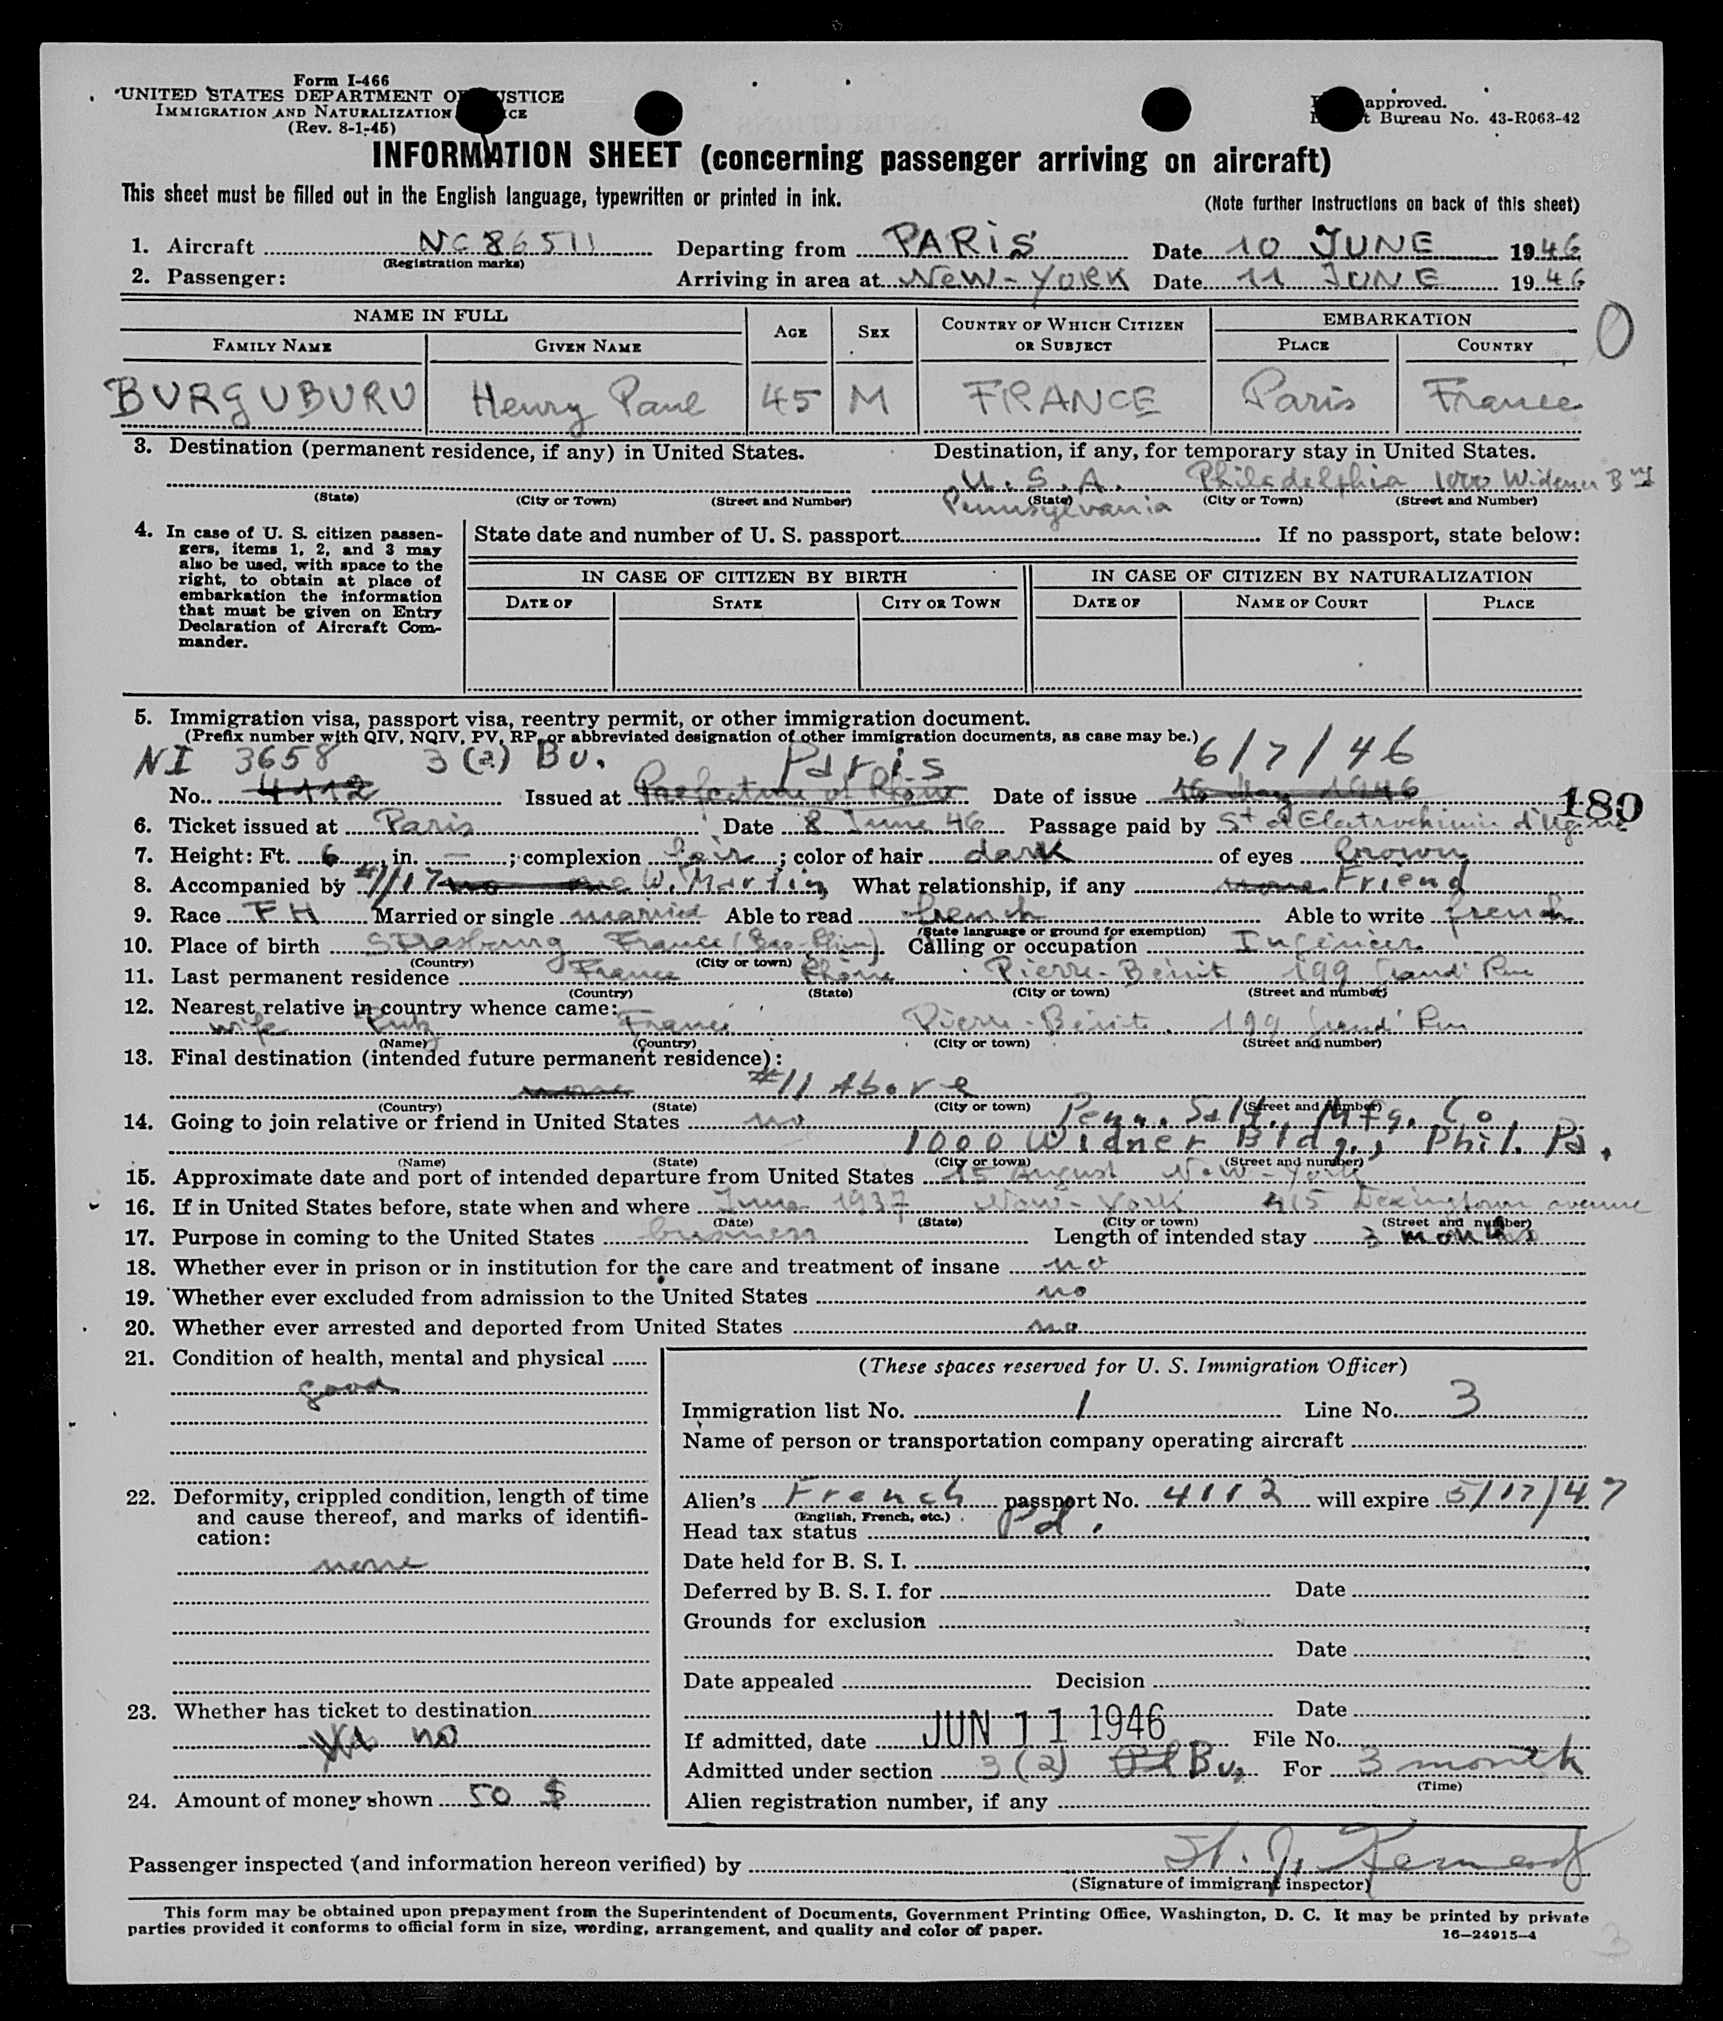 Form I-466
UNITED STATES DEPARTMENT OF JUSTICE
IMMIGRATION AND NATURALIZATION
(Rev. 8-1-45)
approved.
Bureau No. 43-R063-42
INFORMATION SHEET (concerning passenger arriving on aircraft)
This sheet must be filled out in the English language, typewritten or printed in ink.
(Note further instructions on back of this sheet)
1. Aircraft NC 86511 Departing from PARIS Date 10 JUNE 1946
(Registration marks)
2. Passenger: Arriving in area at NEW-YORK Date 11 JUNE 1946
NAME IN FULL AGE SEX COUNTRY OF WHICH CITIZEN OR SUBJECT EMBARKATION
FAMILY NAME GIVEN NAME PLACE COUNTRY
0
BURGUBURU Henry Paul 45 M FRANCE Paris France
3. Destination (permanent residence, if any) in United States. Destination, if any, for temporary stay in United States.
U.S.A. Philadelphia 1000 Widener
(State) (City or Town) (Street and Number) (State) (City or Town) (Street and Number)
Pennsylvania
4. In case of U. S. citizen passengers, items 1, 2, and 3 may also be used, with space to the right, to obtain at place of embarkation the information that must be given on Entry Declaration of Aircraft Commander.
State date and number of U. S. passport If no passport, state below:
IN CASE OF CITIZEN BY BIRTH IN CASE OF CITIZEN BY NATURALIZATION
DATE OF STATE CITY OR TOWN DATE OF NAME OF COURT PLACE
5. Immigration visa, passport visa, reentry permit, or other immigration document.
(Prefix number with QIV, NQIV, PV, RP, or abbreviated designation of other immigration documents, as case may be.)
NI 3658 3(2) Bu. Paris 6/7/46
No. 4112 Issued at Prefecture of Rhone Date of issue 16 May 1946
180
6. Ticket issued at Paris Date 8 June 46 Passage paid by Sté d'Electrochimie d'Ugine
7. Height: Ft. 6, in. —; complexion fair; color of hair dark of eyes brown
8. Accompanied by #1/17 no one W. Martin, What relationship, if any none Friend
9. Race FH Married or single married Able to read french Able to write french
(State language or ground for exemption)
10. Place of birth Strasbourg France (Bas-Rhin) Calling or occupation Ingénieur
(Country) (City or town)
11. Last permanent residence France Rhône Pierre-Bénite 199 Grand' Rue
(Country) (State) (City or town) (Street and number)
12. Nearest relative in country whence came:
wife France Pierre-Bénite 199 Grand' Rue
(Name) (Country) (City or town) (Street and number)
13. Final destination (intended future permanent residence):
none #11 Above
(Country) (State) (City or town) (Street and number)
14. Going to join relative or friend in United States no Penn. Salt. Mfg. Co
1000 Widner Bldg., Phil. Pa.
(Name) (State) (City or town) (Street and number)
15. Approximate date and port of intended departure from United States 15 August New-York
16. If in United States before, state when and where June 1937 New-York 415 Lexingtown avenue
(Date) (State) (City or town) (Street and number)
17. Purpose in coming to the United States business Length of intended stay 3 months
18. Whether ever in prison or in institution for the care and treatment of insane no
19. Whether ever excluded from admission to the United States no
20. Whether ever arrested and deported from United States no
21. Condition of health, mental and physical
good
22. Deformity, crippled condition, length of time and cause thereof, and marks of identification:
none
23. Whether has ticket to destination
no
24. Amount of money shown 50 $
(These spaces reserved for U. S. Immigration Officer)
Immigration list No. 1 Line No. 3
Name of person or transportation company operating aircraft
Alien's French passport No. 4112 will expire 5/17/47
(English, French, etc.)
Head tax status Pd.
Date held for B. S. I.
Deferred by B. S. I. for Date
Grounds for exclusion
Date
Date appealed Decision
Date
If admitted, date JUN 11 1946 File No.
Admitted under section 3(2) Bu. For 3 month
(Time)
Alien registration number, if any
Passenger inspected (and information hereon verified) by
(Signature of immigrant inspector)
This form may be obtained upon prepayment from the Superintendent of Documents, Government Printing Office, Washington, D. C. It may be printed by private
parties provided it conforms to official form in size, wording, arrangement, and quality and color of paper.
16—24915-4
3